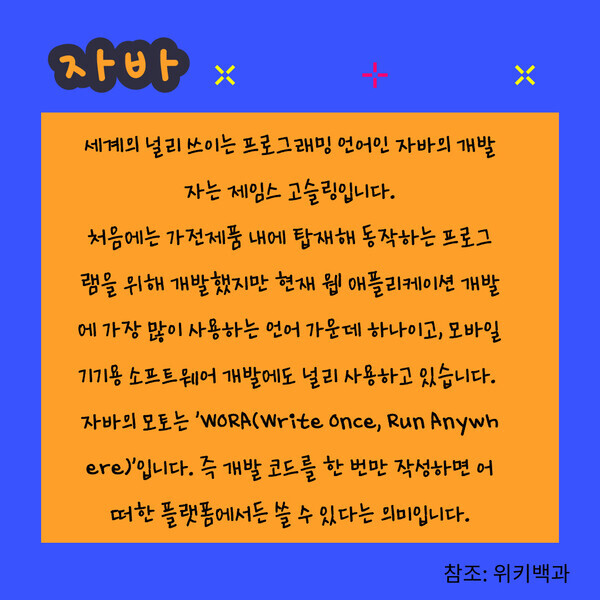 자바
세계의 널리 쓰이는 프로그래밍 언어인 자바의 개발
자는 제임스 고슬링입니다.
처음에는 가전제품 내에 탑재해 동작하는 프로그
램을 위해 개발했지만 현재 웹 애플리케이션 개발
에 가장 많이 사용하는 언어 가운데 하나이고, 모바일
기기용 소프트웨어 개발에도 널리 사용하고 있습니다.
자바의 모토는 'WORA(Write Once, Run Anywh
ere)'입니다. 즉 개발 코드를 한 번만 작성하면 어
떠한 플랫폼에서든 쓸 수 있다는 의미입니다.
참조: 위키백과